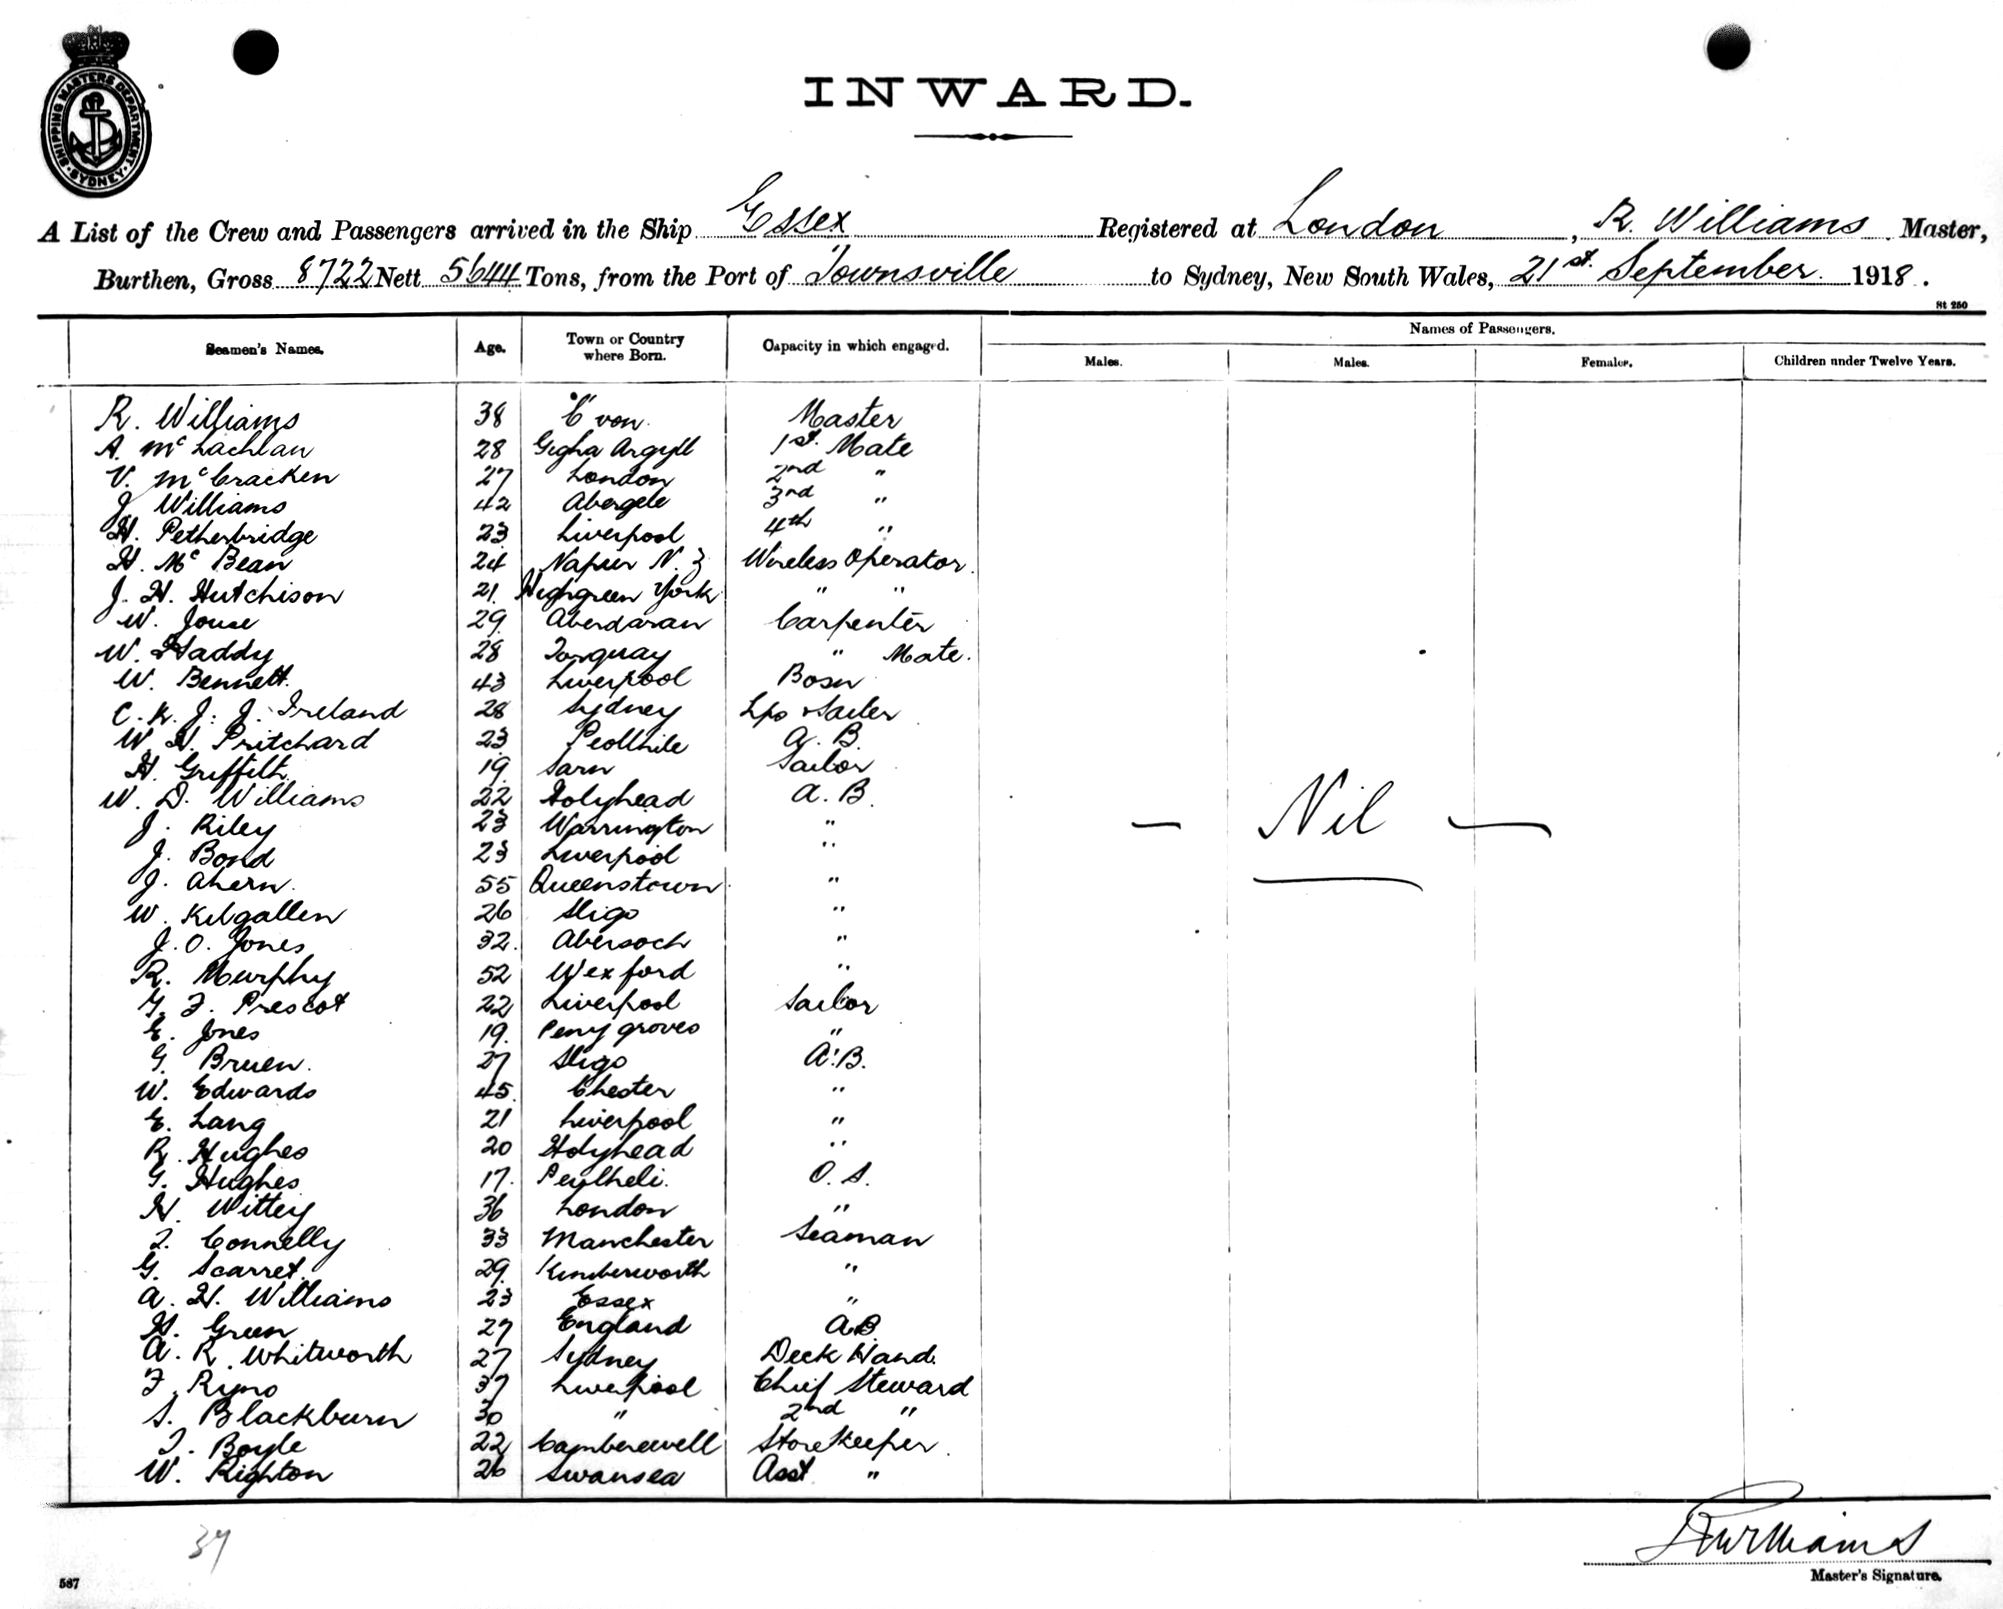 SHIPPING MASTERS DEPARTMENT · SYDNEY ·
INWARD.
A List of the Crew and Passengers arrived in the Ship Essex Registered at London, R. Williams Master,
Burthen, Gross 8722 Nett 5644 Tons, from the Port of Townsville to Sydney, New South Wales, 21st. September 1918.
St 250
Names of Passengers.
Seamen's Names. Age. Town or Country where Born. Capacity in which engaged. Males. Males. Females. Children under Twelve Years.
R. Williams 38 von Master
A. McLachlan 28 Gigha Argyll 1st. Mate
V. McCracken 27 London 2nd "
J Williams 42 Abergele 3rd "
H. Petherbridge 23 Liverpool 4th "
H. McBean 24 Napier N. Z Wireless Operator
J. H. Hutchison 21. Highgreen York " "
W. 29 Aberdaran Carpenter
W. Haddy 28 Torquay " Mate.
W. Bennett. 43 Liverpool Bosn
C. K. J. J. Ireland 28 Sydney Lps Sailer
W. H. Pritchard 23 A. B.
H. Griffith 19 Sarn Sailor
W. D. Williams 22 Holyhead A. B.
J. Riley 23 Warrington "
J. Bond 23 Liverpool "
J. Ahern. 55 Queenstown "
W. Kilgallen 26 Sligo "
J. O. Jones 32. Abersoch "
R. Murphy 52 Wexford "
G. F. Prescot 22 Liverpool Sailor
E. Jones 19. Penygroves "
G. Bruen. 27 Sligo A.B.
W. Edwards 45. Chester "
E. Lang 21 Liverpool "
R. Hughes 20 Holyhead "
G. Hughes 17. Pwlheli. O. S.
H. Wittey 36 London "
T. Connelly 33 Manchester Seaman
G. Scarret. 29. Kimberworth "
A. H. Williams 23 Essex "
H. Green 27 England AB
A. R. Whitworth 27 Sydney Deck Hand.
F. Ryno 37 Liverpool Chief Steward
S. Blackburn 30 " 2nd "
T. Boyle 22 Camberewell StoreKeeper.
W. Righton 26 Swansea Asst "
— Nil —
37
RWilliams
Master's Signature.
587